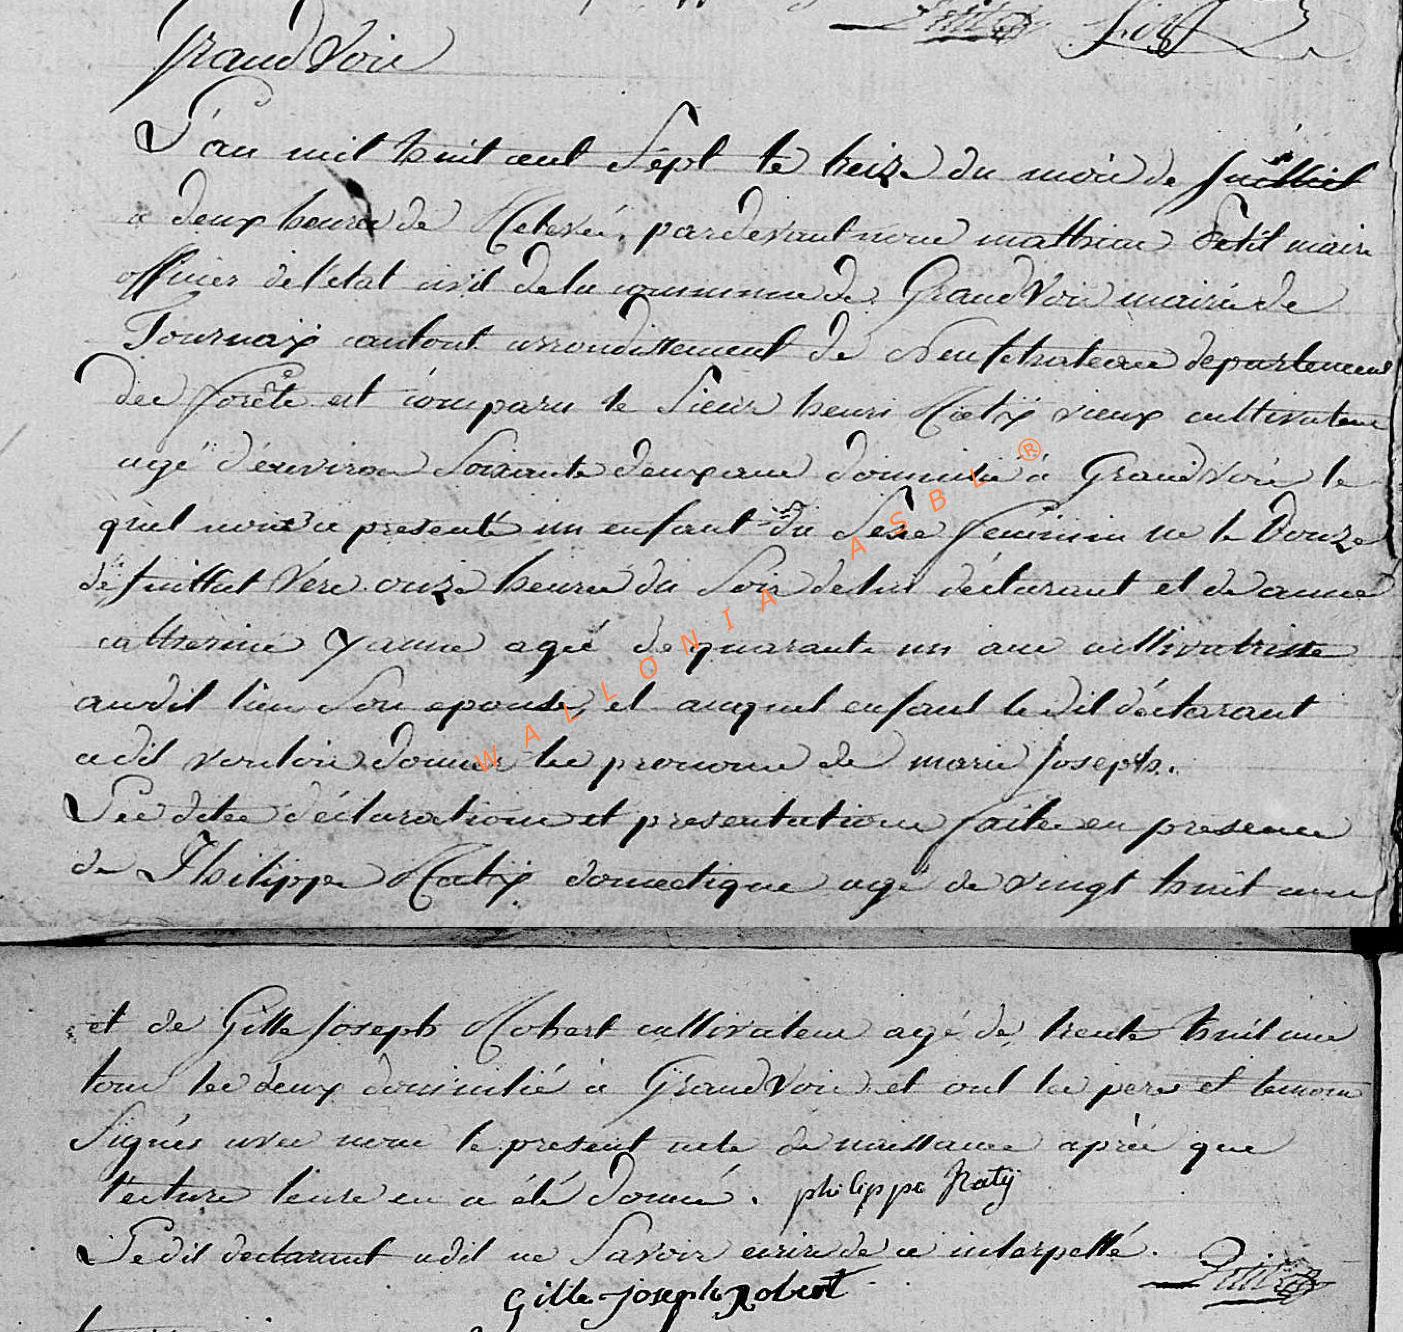 Grand Voir
L'an mil huit cent Sept le treize du mois de Juillet
a deux heures de Relevée, pardevant nous mathieu Petit maire
officier de l'etat civil de la commune de GrandVoir mairie de
Tournay canton arrondissement de Neufchateau departement
des forêts est comparu le Sieur henri Raty vieux cultivateur
agé d'environ Soixante deux ans domicilié à GrandVoir le
quel nous a presenté un enfant du Sexe feminin ne le Douze
de Juillet Vers onze heures du Soir de lui déclarant et de anne
catherine Yanne agée de quarante un ans cultivatrice
audit lieu Son epouse, et auquel enfant le dit déclarant
a dit vouloir donner les prenoms de marie Joseph.
Les dites déclarations et presentations faites en presence
de Philippe Raty domestique agé de vingt huit ans
et de Gille Joseph Robert cultivateur agé de trente huit ans
tous les deux domicilié à GrandVoir et ont les pere et temoins
Signés avec nous le present acte de naissance après que
lecture leure en a été donné. philippe Raty
Le dit declarant a dit ne Savoir ecrire de ce interpellé.
Petit
Gille joseph Robert
WALLONIA ASBL ®